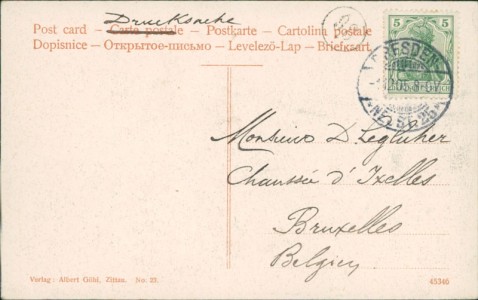 Drucksache
Post card - Carte postale - Postkarte - Cartolina postale
Dopisnice - Открытое-письмо - Levelező-Lap - Briefkaart
5 5
DRESDEN
NEUST. 25
Monsieur D. Legluher
Chaussée d'Ixelles
Bruxelles
Belgien
Verlag: Albert Göbl, Zittau. No. 22.
45346